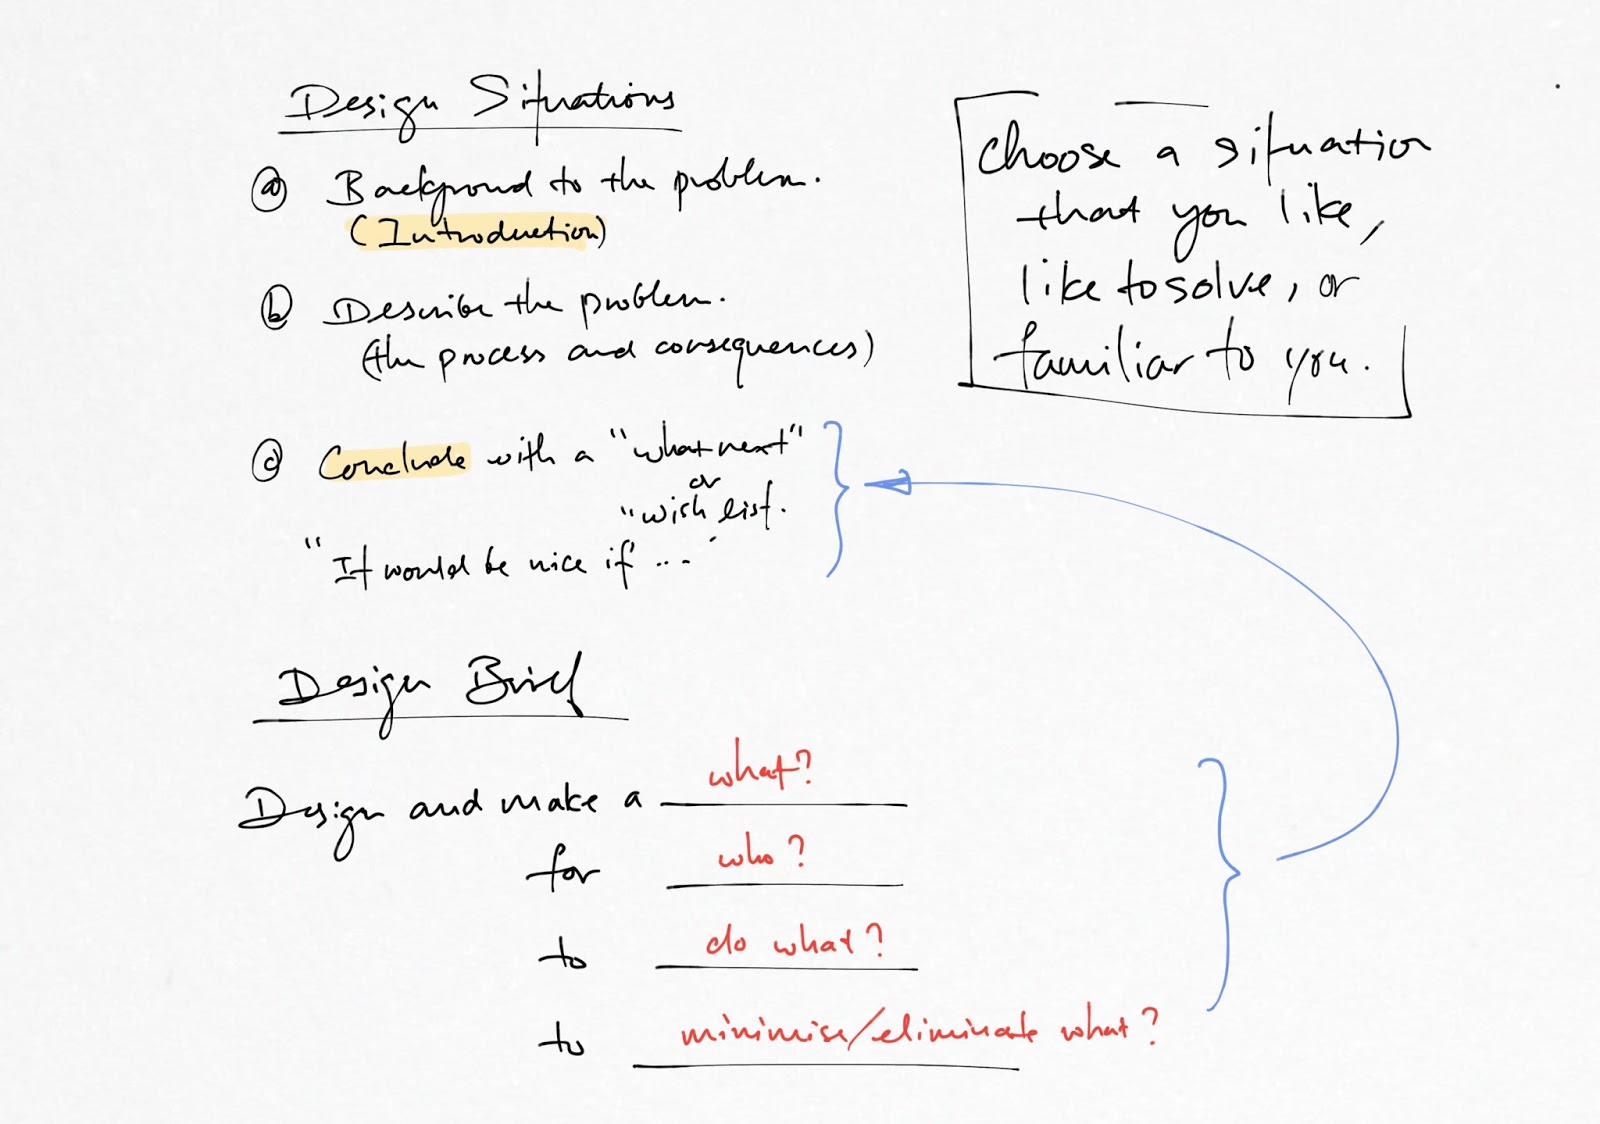 Design Situations
a Backgroud to the problem.
(Introduction)
b Describe the problem.
(the process and consequences)
c Conclude with a "what next"
or
"wish list.
"It would be nice if ... '
choose a situation
that you like,
like to solve, or
familiar to you.
Design Brief
Design and make a what?
for who?
to do what?
to minimise/eliminate what?